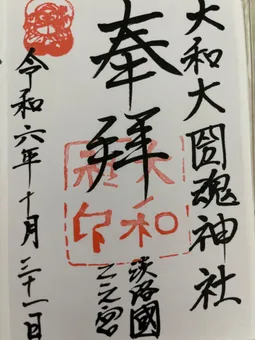 大和大圀魂神社
淡路國二之宮
奉拝
大和
社印
令和六年十月三十一日